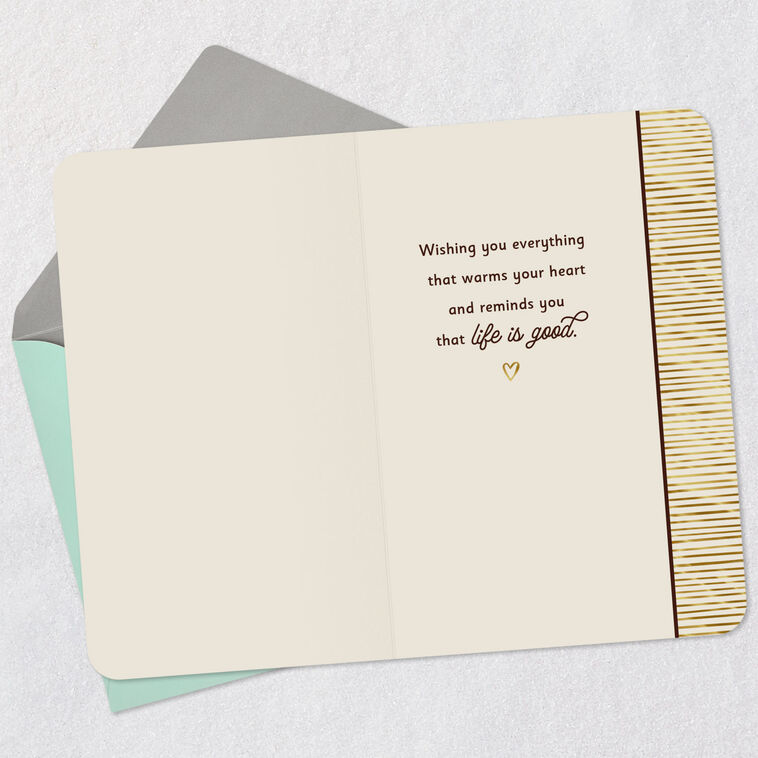 Wishing you everything
that warms your heart
and reminds you
that life is good.